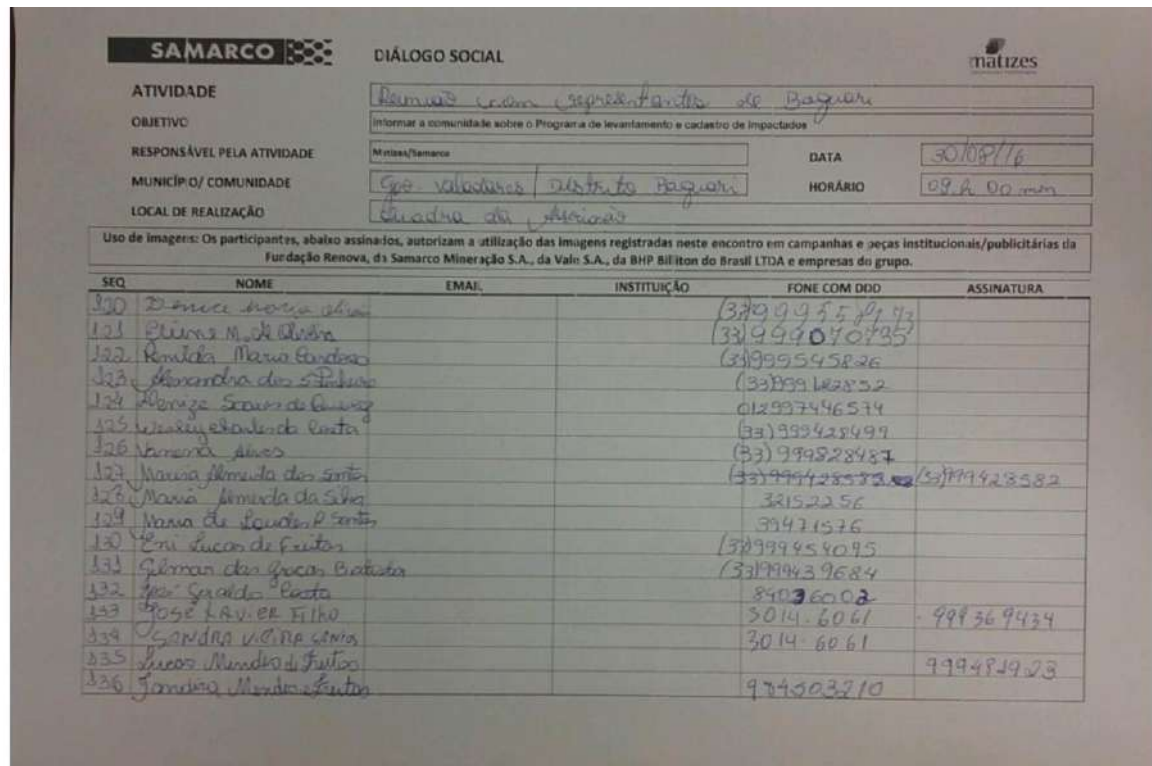 SAMARCO DIÁLOGO SOCIAL matizes
ATIVIDADE Reunião com representantes de Baguari
OBJETIVO Informar a comunidade sobre o Programa de levantamento e cadastro de Impactados
RESPONSÁVEL PELA ATIVIDADE Matizes/Samarco DATA 30/08/16
MUNICÍPIO/ COMUNIDADE Gov. Valadares / Distrito Baguari HORÁRIO 09 h 00 min
LOCAL DE REALIZAÇÃO Quadra da
Uso de Imagens: Os participantes, abaixo assinados, autorizam a utilização das imagens registradas neste encontro em campanhas e peças institucionais/publicitárias da
Fundação Renova, da Samarco Mineração S.A., da Vale S.A., da BHP Billiton do Brasil LTDA e empresas do grupo.
SEQ NOME EMAIL INSTITUIÇÃO FONE COM DDD ASSINATURA
120 Denice
121 M. de Oliveira (33)999070735
122 Renilda Maria Cardoso 999545826
123 dos
124 Denize Soares de 012997446574
125 da Costa (33)999428499
126 Alves (33)999828487
127 Marisa Almeida dos Santos (33)999428582
128 Maria Almeida da Silva 32152256
129 Maria de Lourdes P Santos 39471576
130 Eni Lucas de Freitas 999454095
131 Gilmar das Graças Batista (33)999439684
132 José Geraldo Costa 84036002
133 José XAVIER Filho 3014.6061 999369434
134 SANDRA VIEIRA SANTOS 3014-6061
135 Lucas Mendes de Freitas 999481923
136 Jandira Mendes Freitas 984503210